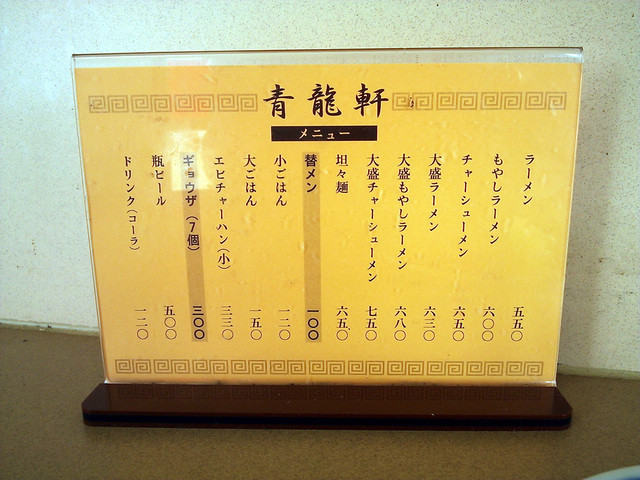 青龍軒
メニュー
ラーメン 五五〇
もやしラーメン 六〇〇
チャーシューメン 六五〇
大盛ラーメン 六三〇
大盛もやしラーメン 六八〇
大盛チャーシューメン 七五〇
坦々麺 六五〇
替メン 一〇〇
小ごはん 一二〇
大ごはん 一五〇
エビチャーハン(小) 三三〇
ギョウザ(7個) 三〇〇
瓶ビール 五〇〇
ドリンク(コーラ) 一二〇